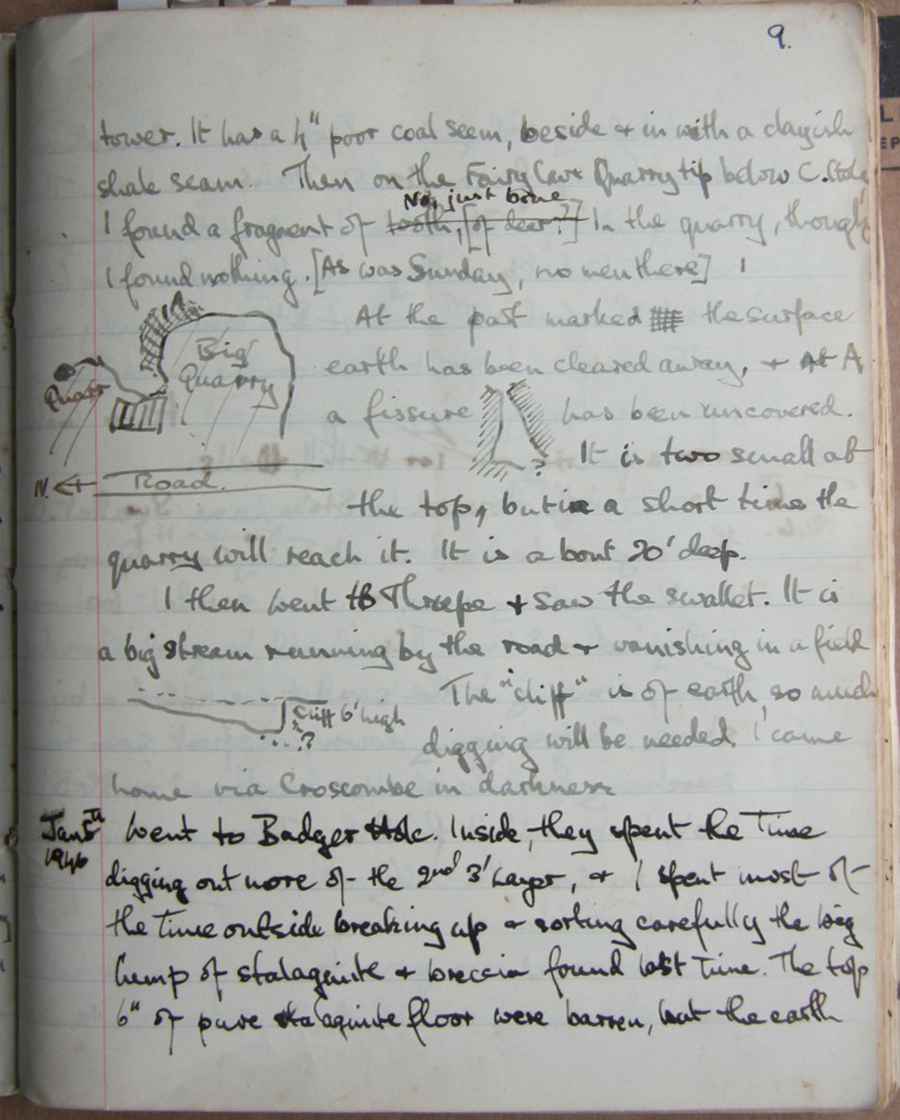 9.
tower. It has a 4" poor coal seam, beside & in with a clayish
shale seam. Then on the Fairy Cave Quarry tip below C. Hole
No, just bone
I found a fragment of tooth, [of deer?] In the quarry, though
I found nothing. [As was Sunday, no men there]
At the part marked the surface
earth has been cleared away, & At A
a fissure has been uncovered.
It is two small at
the top, but in a short time the
quarry will reach it. It is about 20' deep.
A
Big
Quarry
Quarr
N. ← Road.
I then went to Thrupe & saw the swallet. It is
a big stream running by the road & vanishing in a field
The "cliff" is of earth, so much
cliff 6' high
?
digging will be needed. I came
home via Croscombe in darkness
Jan 5th
1946
Went to Badger Hole. Inside, they spent the time
digging out more of the 2nd 3' Layer, & I spent most of
the time outside breaking up & sorting carefully the big
lump of stalagmite & breccia found last time. The top
6" of pure stalagmite floor were barren, but the earth